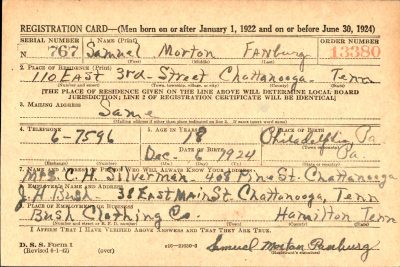 REGISTRATION CARD—(Men born on or after January 1, 1922 and on or before June 30, 1924)
SERIAL NUMBER 1. NAME (Print) ORDER NUMBER
N 767 Samuel Morton FANburg 13380
(First) (Middle) (Last)
2. PLACE OF RESIDENCE (Print)
110 EAST 3rd-Street Chattanooga. Tenn
(Number and street) (Town, township, village, or city) (County) (State)
[THE PLACE OF RESIDENCE GIVEN ON THE LINE ABOVE WILL DETERMINE LOCAL BOARD
JURISDICTION; LINE 2 OF REGISTRATION CERTIFICATE WILL BE IDENTICAL]
3. MAILING ADDRESS
Same
(Mailing address if other than place indicated on line 2. If same insert word same)
4. TELEPHONE 5. AGE IN YEARS 18 PLACE OF BIRTH
6-7596 Philadelphia Pa
DATE OF BIRTH (Town or county)
Dec. 6 1924 Pa
(Exchange) (Number) (Mo.) (Day) (Yr.) (State or country)
7. NAME AND ADDRESS OF PERSON WHO WILL ALWAYS KNOW YOUR ADDRESS
Mrs. C. H. Silverman 408 Pine St. Chattanooga
EMPLOYER'S NAME AND ADDRESS
J. H. Bush 38 East Main St. Chattanooga, Tenn
PLACE OF EMPLOYMENT OR BUSINESS
Bush Clothing Co. Hamilton Tenn
(Number and street or R. F. D. number) (Town) (County) (State)
I AFFIRM THAT I HAVE VERIFIED ABOVE ANSWERS AND THAT THEY ARE TRUE.
D. S. S. Form 1
(Revised 6-1-42) (over) Samuel Morton Fanburg